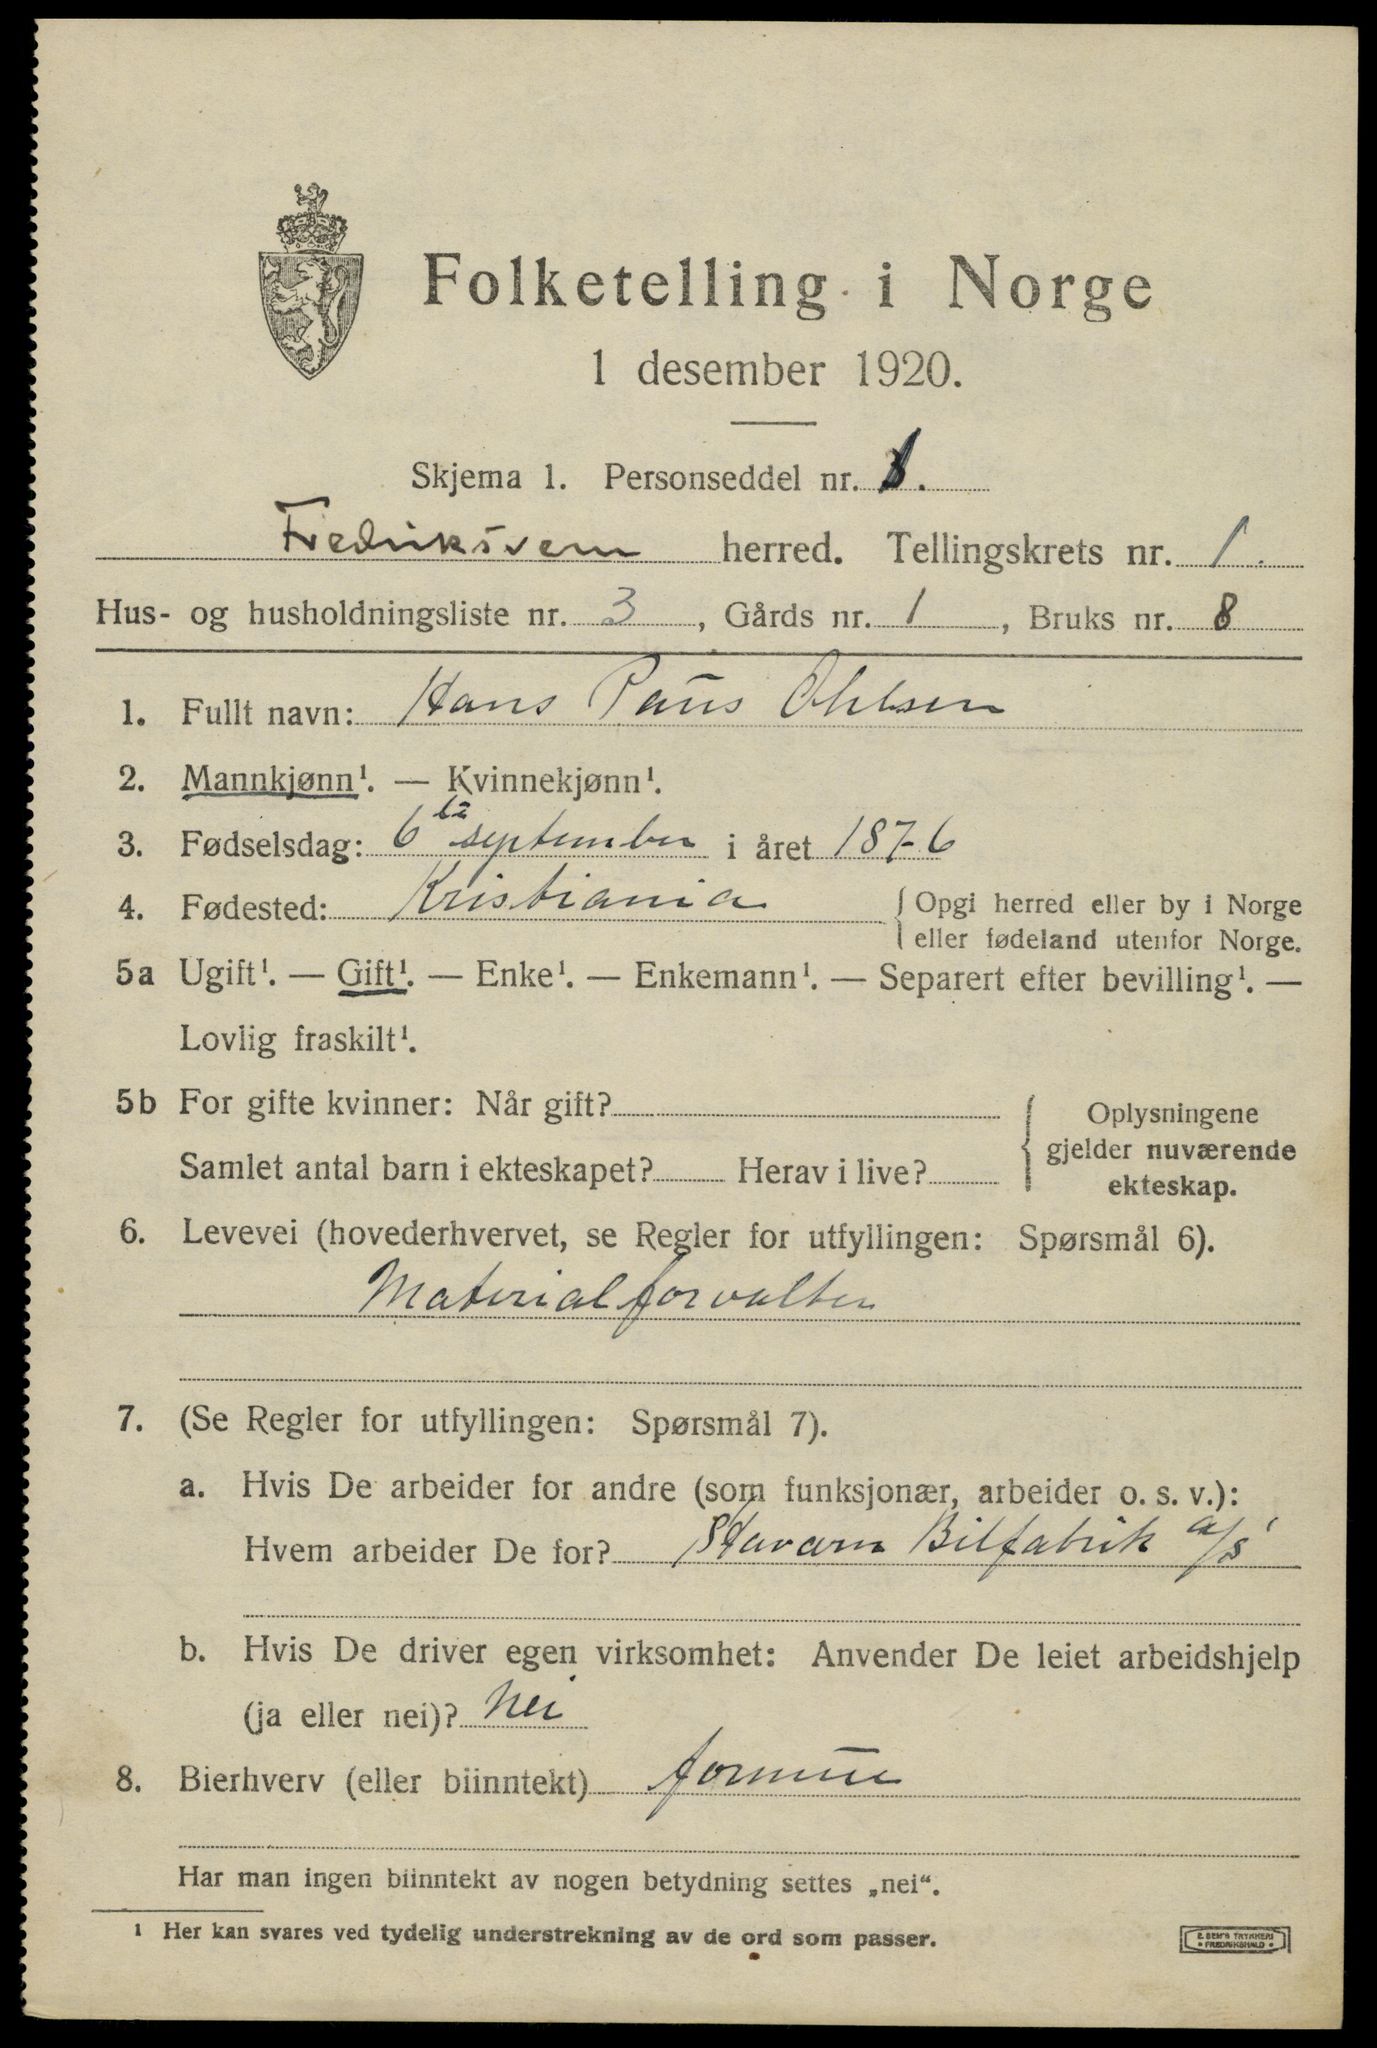 Folketelling i Norge
1 desember 1920.
Skjema 1. Personseddel nr. 1.
Fredriksvern herred. Tellingskrets nr. 1.
Hus- og husholdningsliste nr. 3, Gårds nr. 1, Bruks nr. 8
1. Fullt navn: Hans Paus Ohlsen
2. Mannkjønn¹. — Kvinnekjønn¹.
3. Fødselsdag: 6te september i året 1876
4. Fødested: Kristiania { Opgi herred eller by i Norge
eller fødeland utenfor Norge.
5a Ugift¹. — Gift¹. — Enke¹. — Enkemann¹. — Separert efter bevilling¹. —
Lovlig fraskilt¹.
5b For gifte kvinner: Når gift?
Samlet antal barn i ekteskapet? Herav i live?
{ Oplysningene
gjelder nuværende
ekteskap.
6. Levevei (hovederhvervet, se Regler for utfyllingen: Spørsmål 6).
Materialforvalter
7. (Se Regler for utfyllingen: Spørsmål 7).
a. Hvis De arbeider for andre (som funksjonær, arbeider o. s. v.):
Hvem arbeider De for? Stavern Bilfabrik a/s
b. Hvis De driver egen virksomhet: Anvender De leiet arbeidshjelp
(ja eller nei)? Nei
8. Bierhverv (eller biinntekt) formue
Har man ingen biinntekt av nogen betydning settes „nei“.
1 Her kan svares ved tydelig understrekning av de ord som passer.
E. SEM'S TRYKKERI
• FREDRIKSHALD •